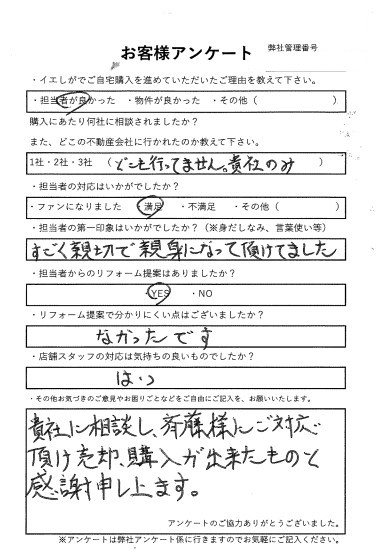 お客様アンケート
弊社管理番号
・イエしがでご自宅購入を進めていただいたご理由を教えて下さい。
・担当者が良かった ・物件が良かった ・その他（ ）
購入にあたり何社に相談されましたか？
また、どこの不動産会社に行かれたのか教えて下さい。
1社・2社・3社 （ どこも行ってません。貴社のみ ）
・担当者の対応はいかがでしたか？
・ファンになりました ・満足 ・不満足 ・その他（ ）
・担当者の第一印象はいかがでしたか？（※身だしなみ、言葉使い等）
すごく親切で親身になって頂けてました
・担当者からのリフォーム提案はありましたか？
・YES ・NO
・リフォーム提案で分かりにくい点はございましたか？
なかったです
・店舗スタッフの対応は気持ちの良いものでしたか？
はい
・その他お気づきのご意見やお困りごとなどをご自由にご記入を、お願いいたします。
貴社に相談し、斉藤様にご対応
頂け売却、購入が出来たものと
感謝申し上ます。
アンケートのご協力ありがとうございました。
※アンケートは弊社アンケート係に行きますのでお気軽にご記入ください。